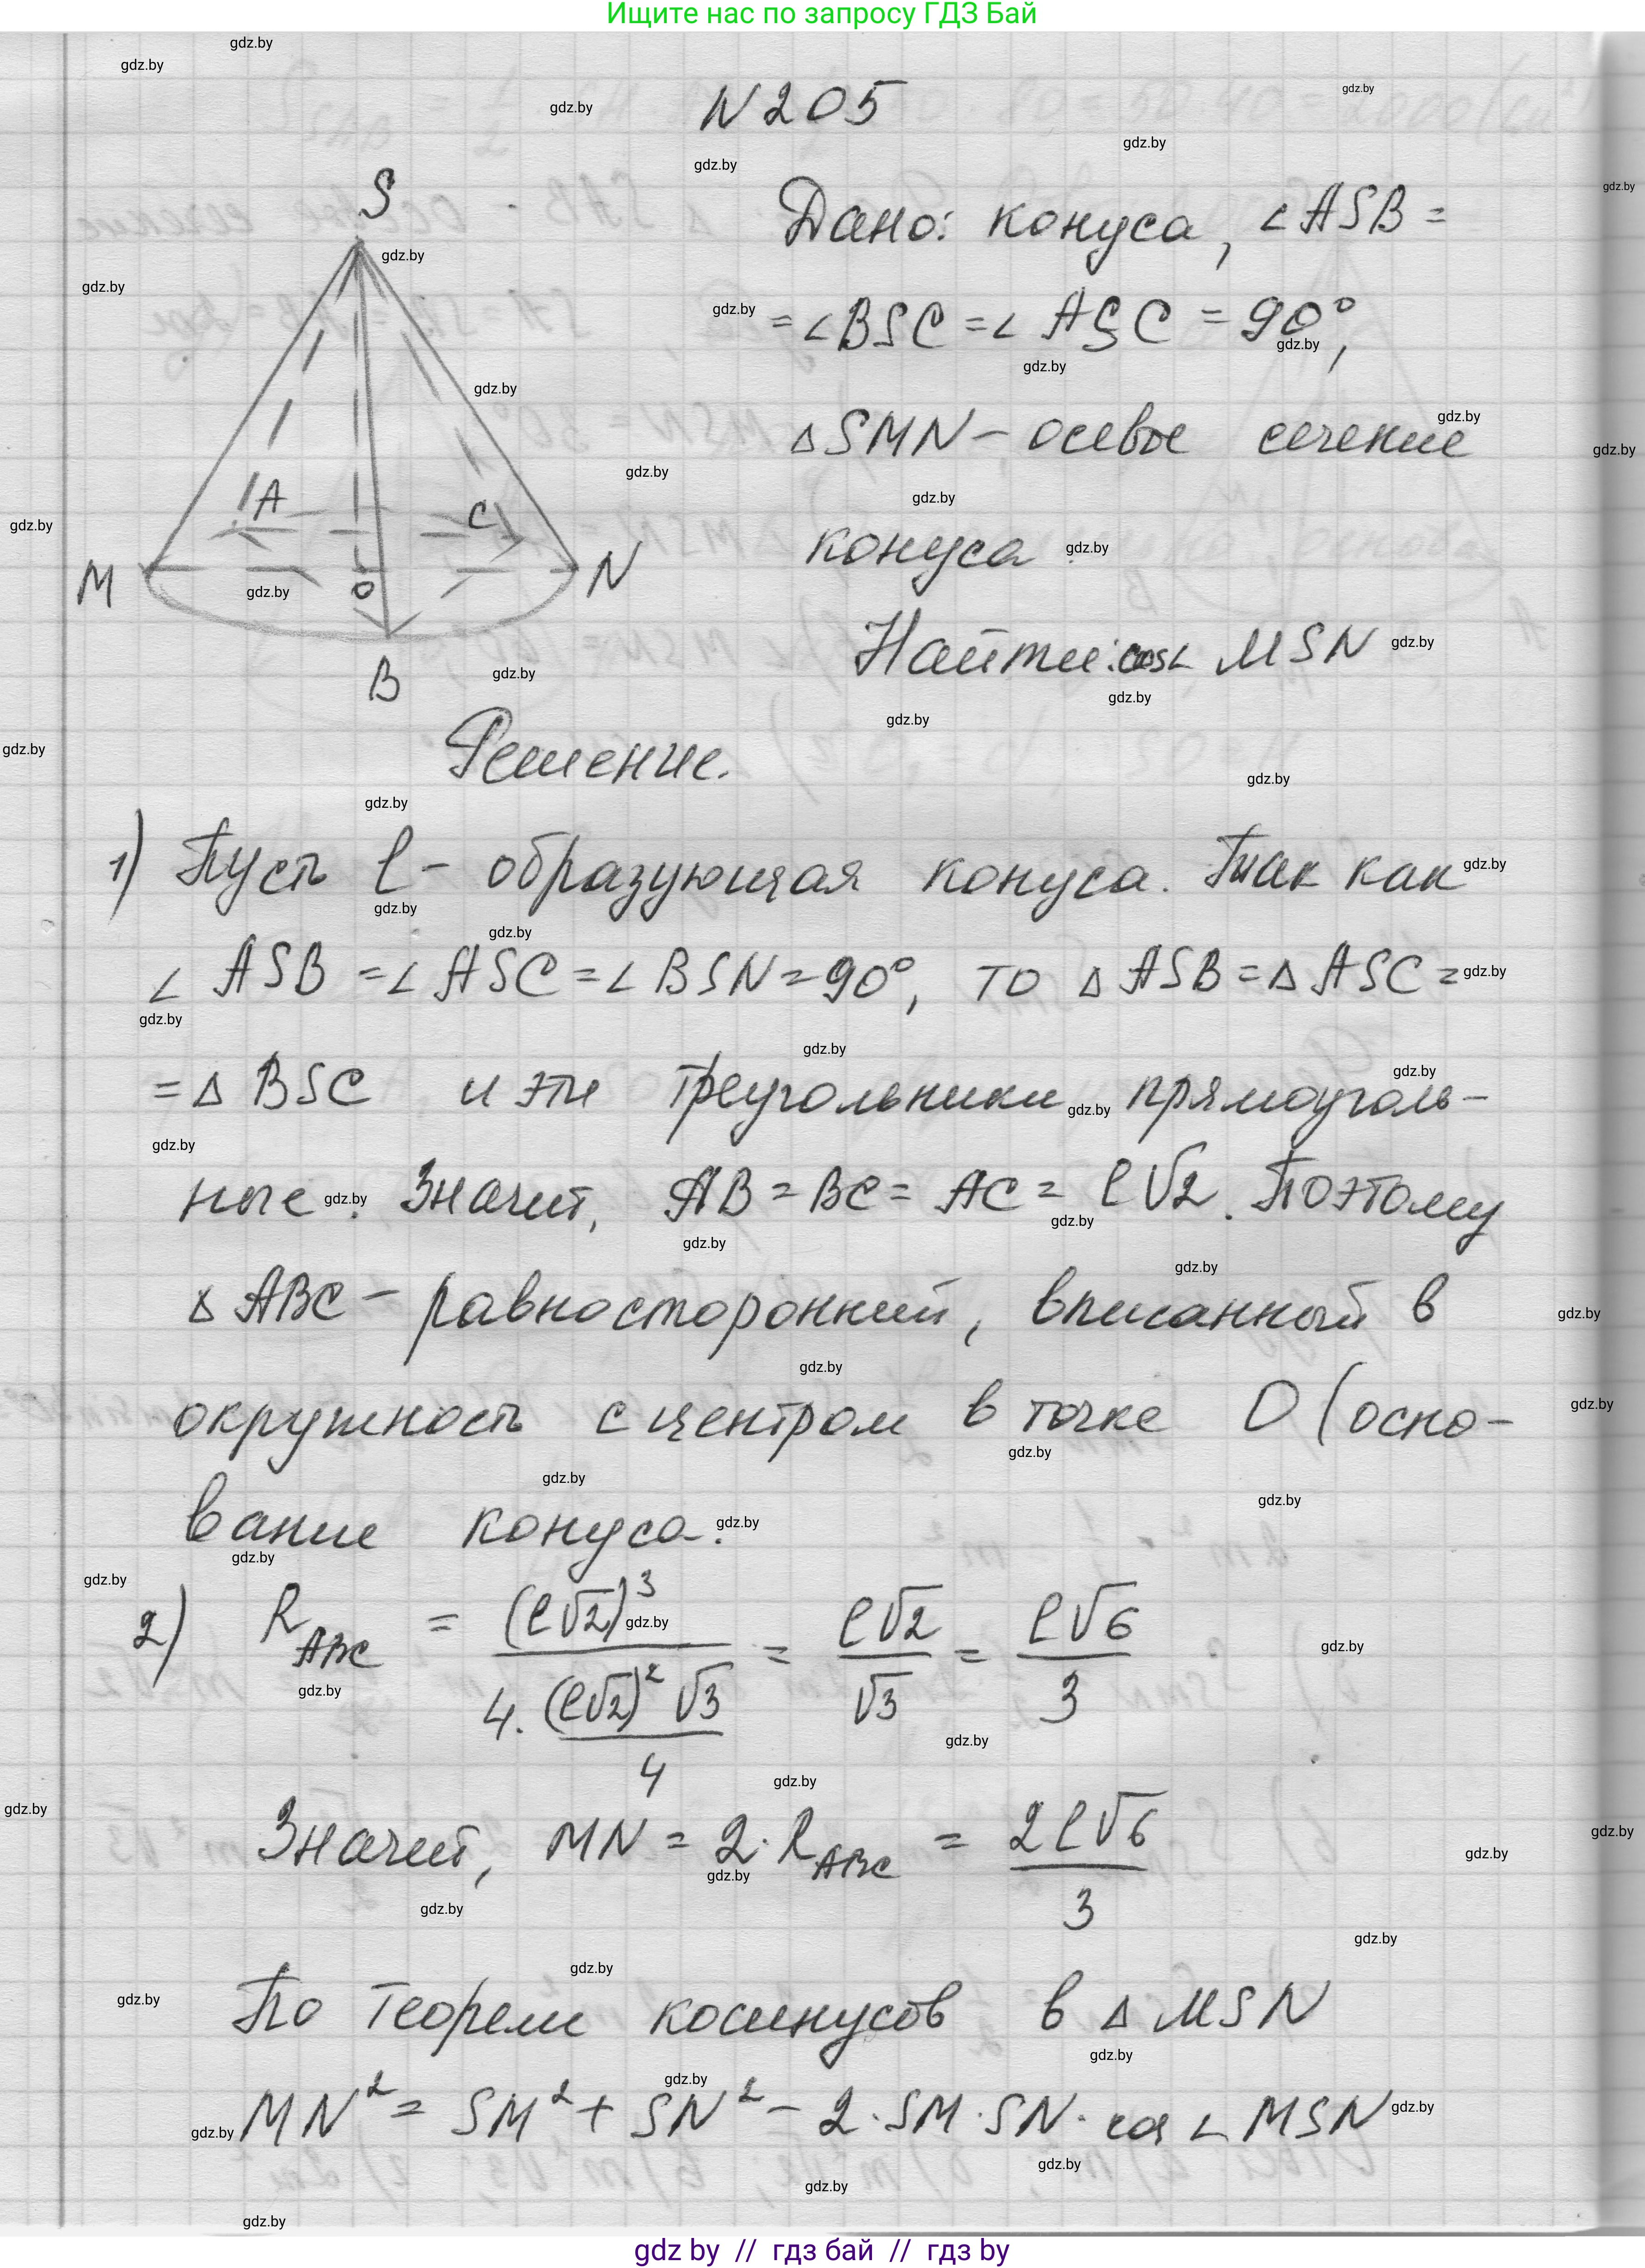 Ищите нас по запросу ГДЗ Бай
N 205
S
A
C
M
O
N
B
Дано: конуса, ∠ASB =
= ∠BSC = ∠ASC = 90°,
△SMN – осевое сечение
конуса
Найти: cos∠ MSN
Решение.
1) Пусть l – образующая конуса. Так как
∠ ASB = ∠ ASC = ∠ BSN = 90°, то △ ASB = △ ASC =
= △ BSC и эти треугольники прямоуголь-
ные. Значит, AB = BC = AC = l√2. Поэтому
△ ABC – равносторонний, вписанный в
окружность с центром в точке O (осно-
вание конуса.
2) R_ABC = (l√2)³ / (4·(l√2)²√3 / 4) = l√2 / √3 = l√6 / 3
Значит, MN = 2·R_ABC = 2l√6 / 3
По теореме косинусов в △ MSN
MN² = SM² + SN² – 2·SM·SN·cos ∠ MSN
gdz by // гдз бай // гдз by